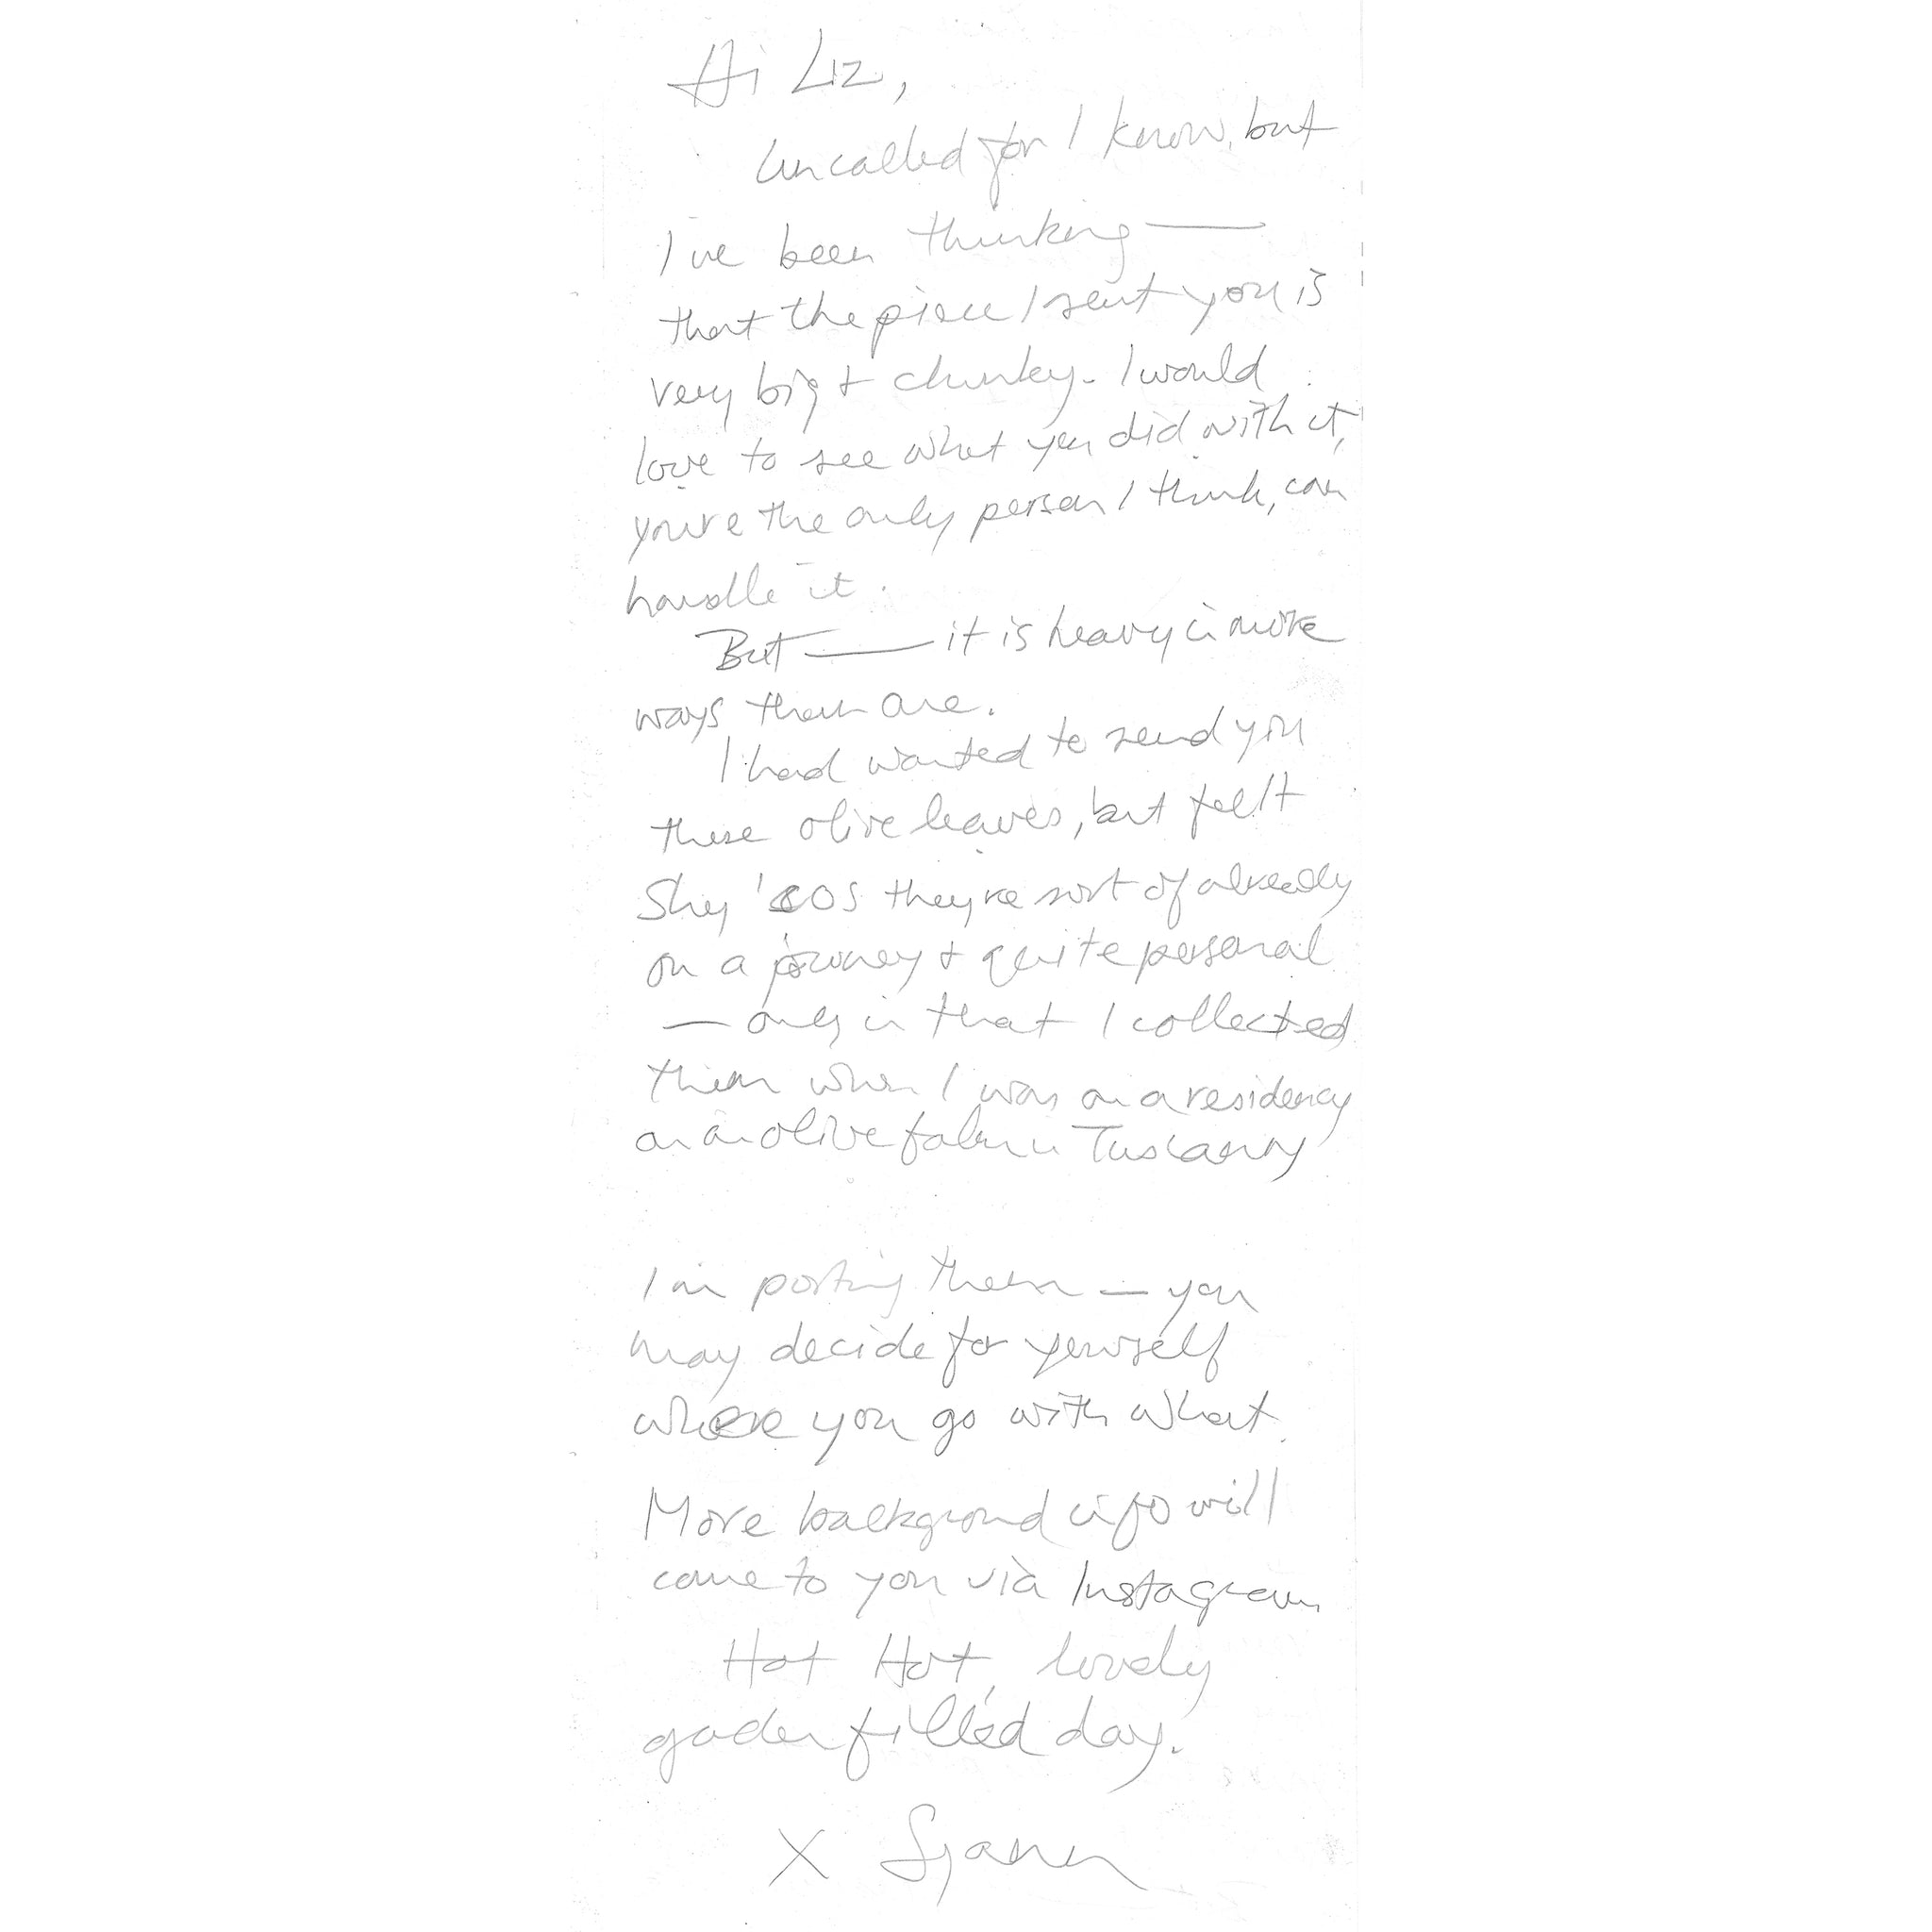 Hi Liz,
Uncalled for I know, but
I've been thinking —
that the piece I sent you is
very big + chunky. I would
love to see what you did with it,
you're the only person I think, can
handle it.
But — it is heavy in more
ways than one.
I had wanted to send you
these olive leaves, but felt
Shy 'cos they're sort of already
on a journey + quite personal
— only in that I collected
them when I was on a residency
on an olive farm in Tuscany
I'm posting them — you
may decide for yourself
where you go with what.
More background info will
come to you via Instagram
Hot Hot, lovely
garden filled day.
X